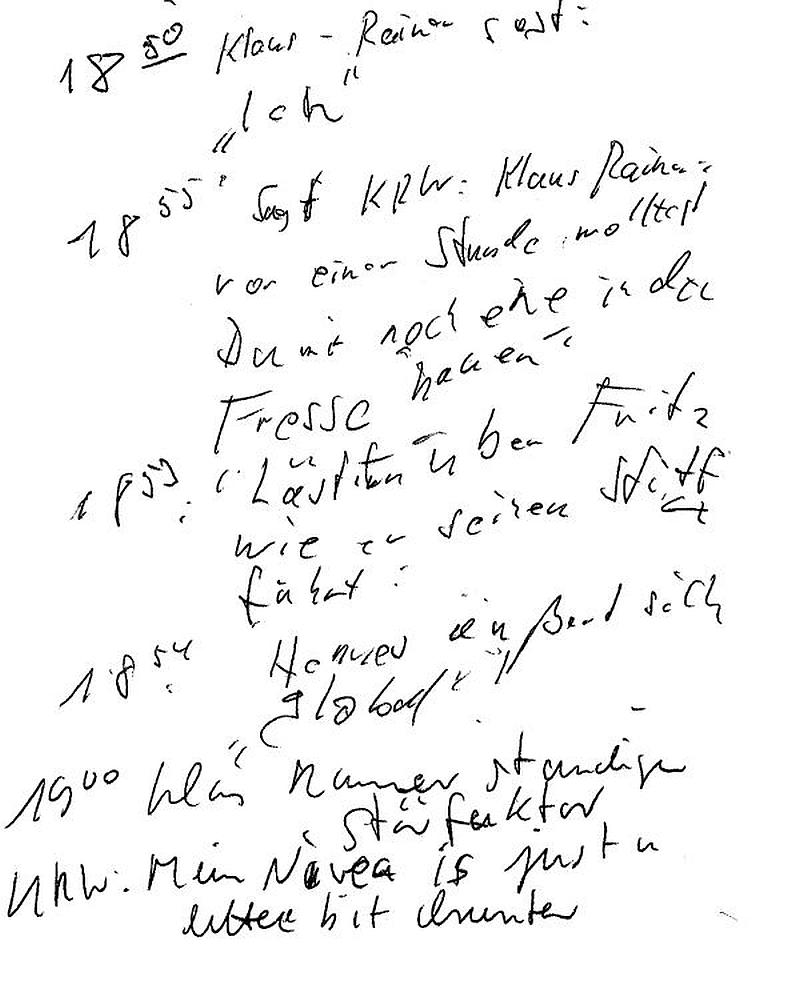 18 50 Klaus - Rainer sagt:
„Ich"
18 55: Sagt KRW: Klaus Rainer:
vor einer Stunde wolltest
Du mir noch eine in der
Fresse hauen"
18 53: Lästern über Fritz
wie er seinen Stift
führt:
18 54: Hannes äußert sich
"global"
19 00 Klaus Rainer ständiger
Störfaktor
KRW: Mein Nivea is just a
little bit drunter